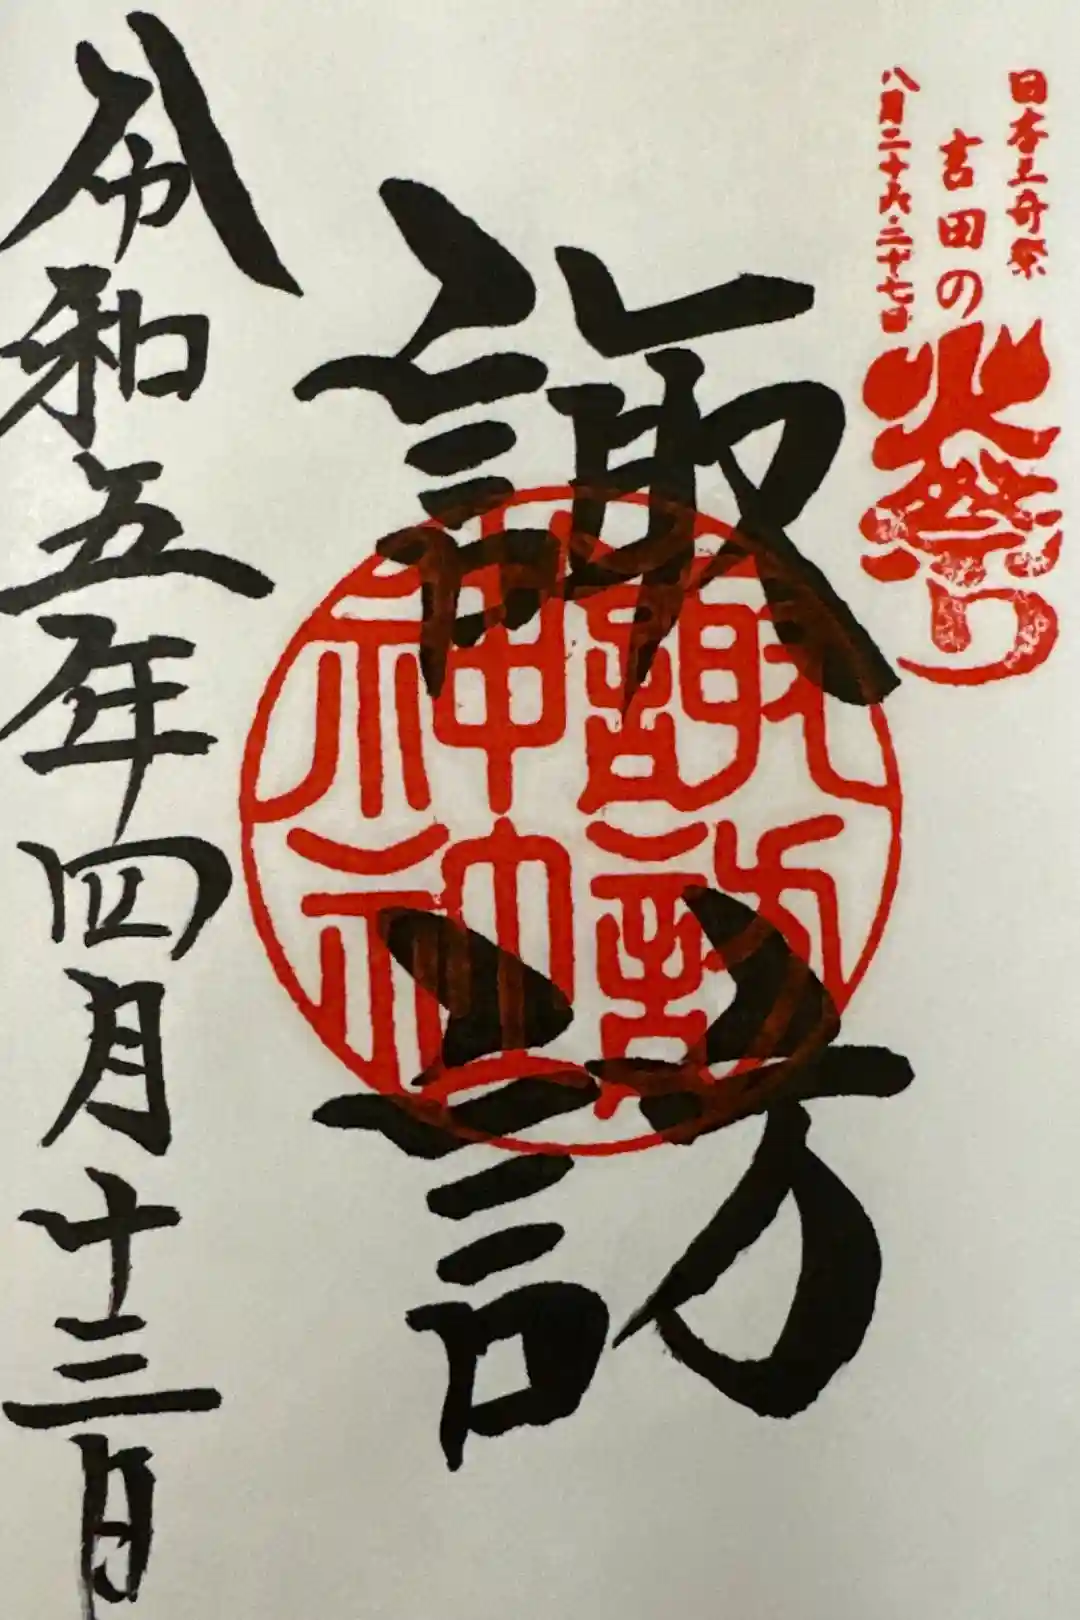 日本三奇祭
吉田の火祭り
八月二十六・二十七日
諏訪
諏訪
神神
令和五年四月十三日